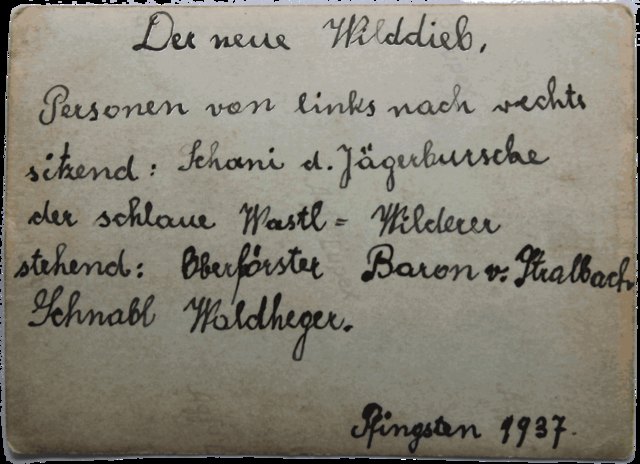 Der neue Wilddieb.
Personen von links nach rechts
sitzend: Schani d. Jägerbursche
der schlaue Wastl = Wilderer
stehend: Oberförster Baron v. Stralbach
Schnabl Waldheger.
Pfingsten 1937.